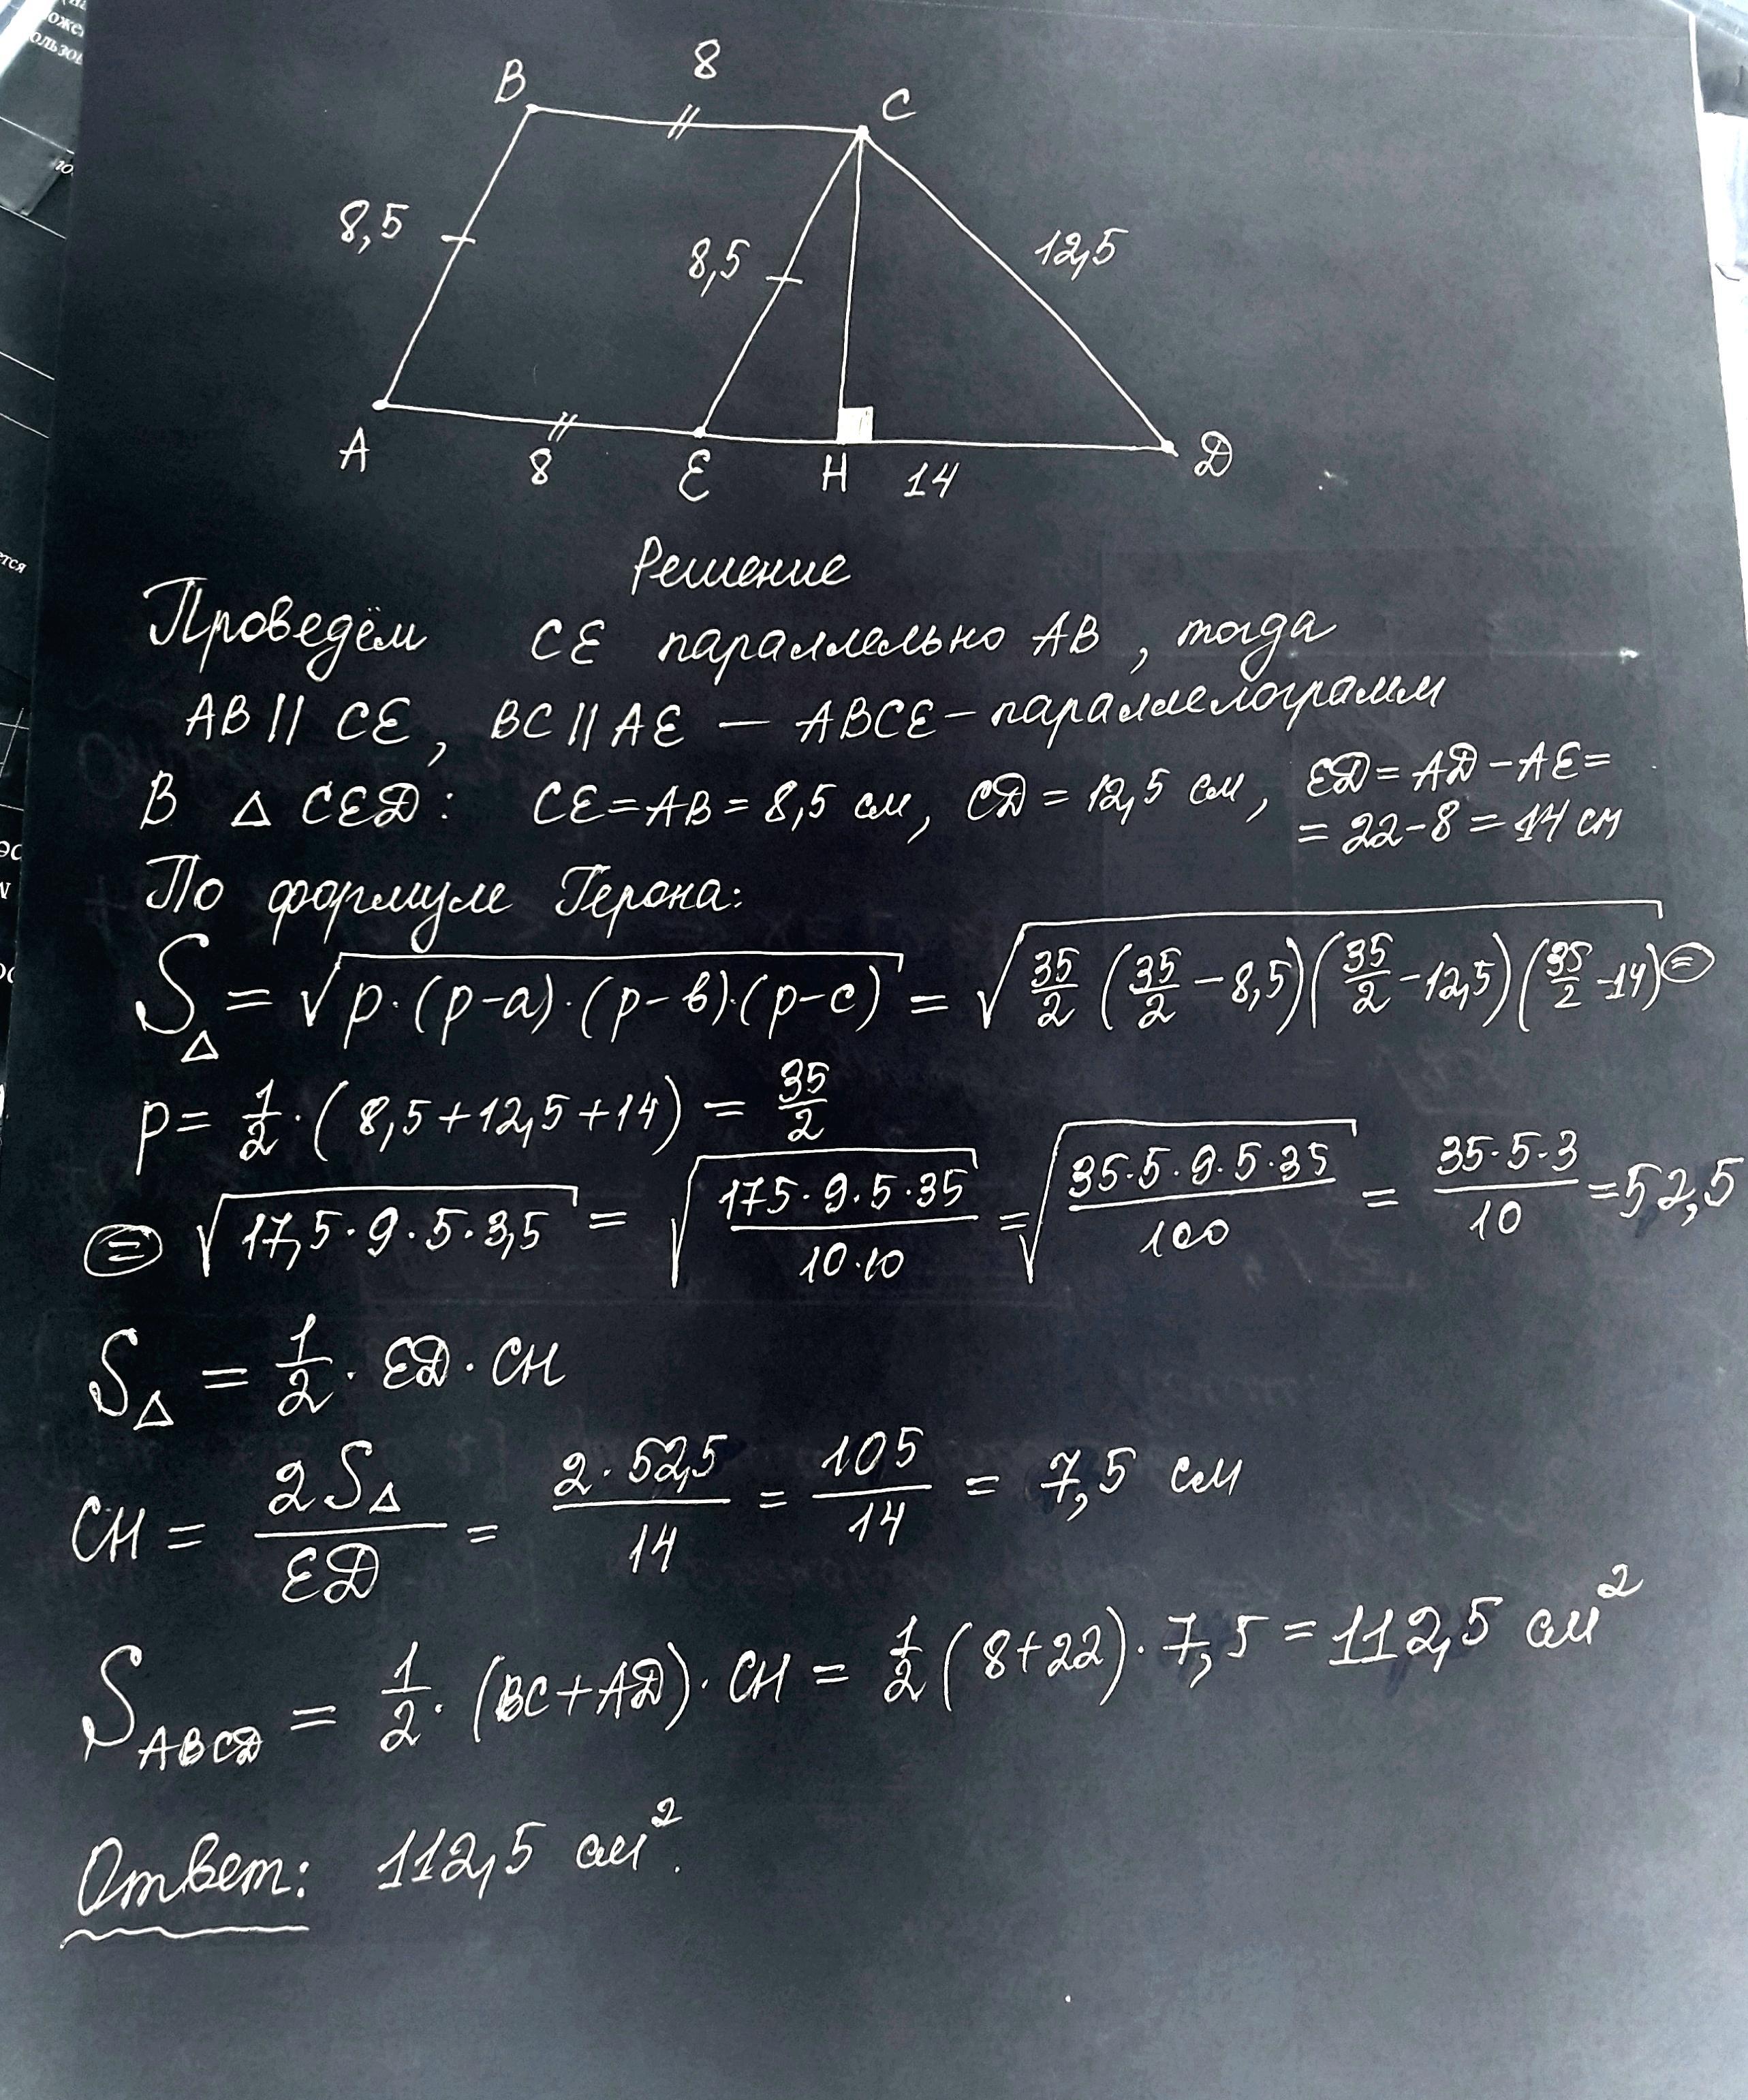 8
B
C
8,5
8,5
12,5
A
8
E
H
14
D
Решение
Проведём CE параллельно AB, тогда
AB || CE, BC || AE — ABCE - параллелограмм
В △ CED: CE = AB = 8,5 см, CD = 12,5 см, ED = AD - AE =
= 22 - 8 = 14 см
По формуле Герона:
S△ = √(p·(p-a)·(p-в)·(p-c)) = √(35/2 (35/2 - 8,5)(35/2 - 12,5)(35/2 - 14)) ⊜
p = 1/2·(8,5 + 12,5 + 14) = 35/2
⊜ √(17,5·9·5·3,5) = √((175·9·5·35)/(10·10)) = √((35·5·9·5·35)/100) = (35·5·3)/10 = 52,5
S△ = 1/2 · ED · CH
CH = 2S△/ED = (2·52,5)/14 = 105/14 = 7,5 см
S ABCD = 1/2 · (BC + AD) · CH = 1/2 (8 + 22) · 7,5 = 112,5 см²
Ответ: 112,5 см².